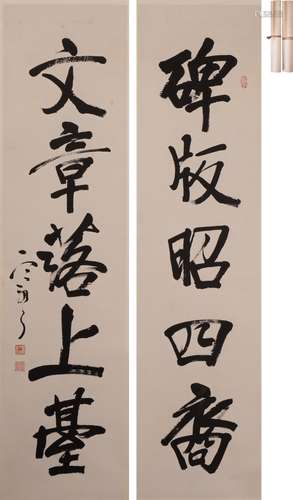 碑版昭四裔
文章落上臺